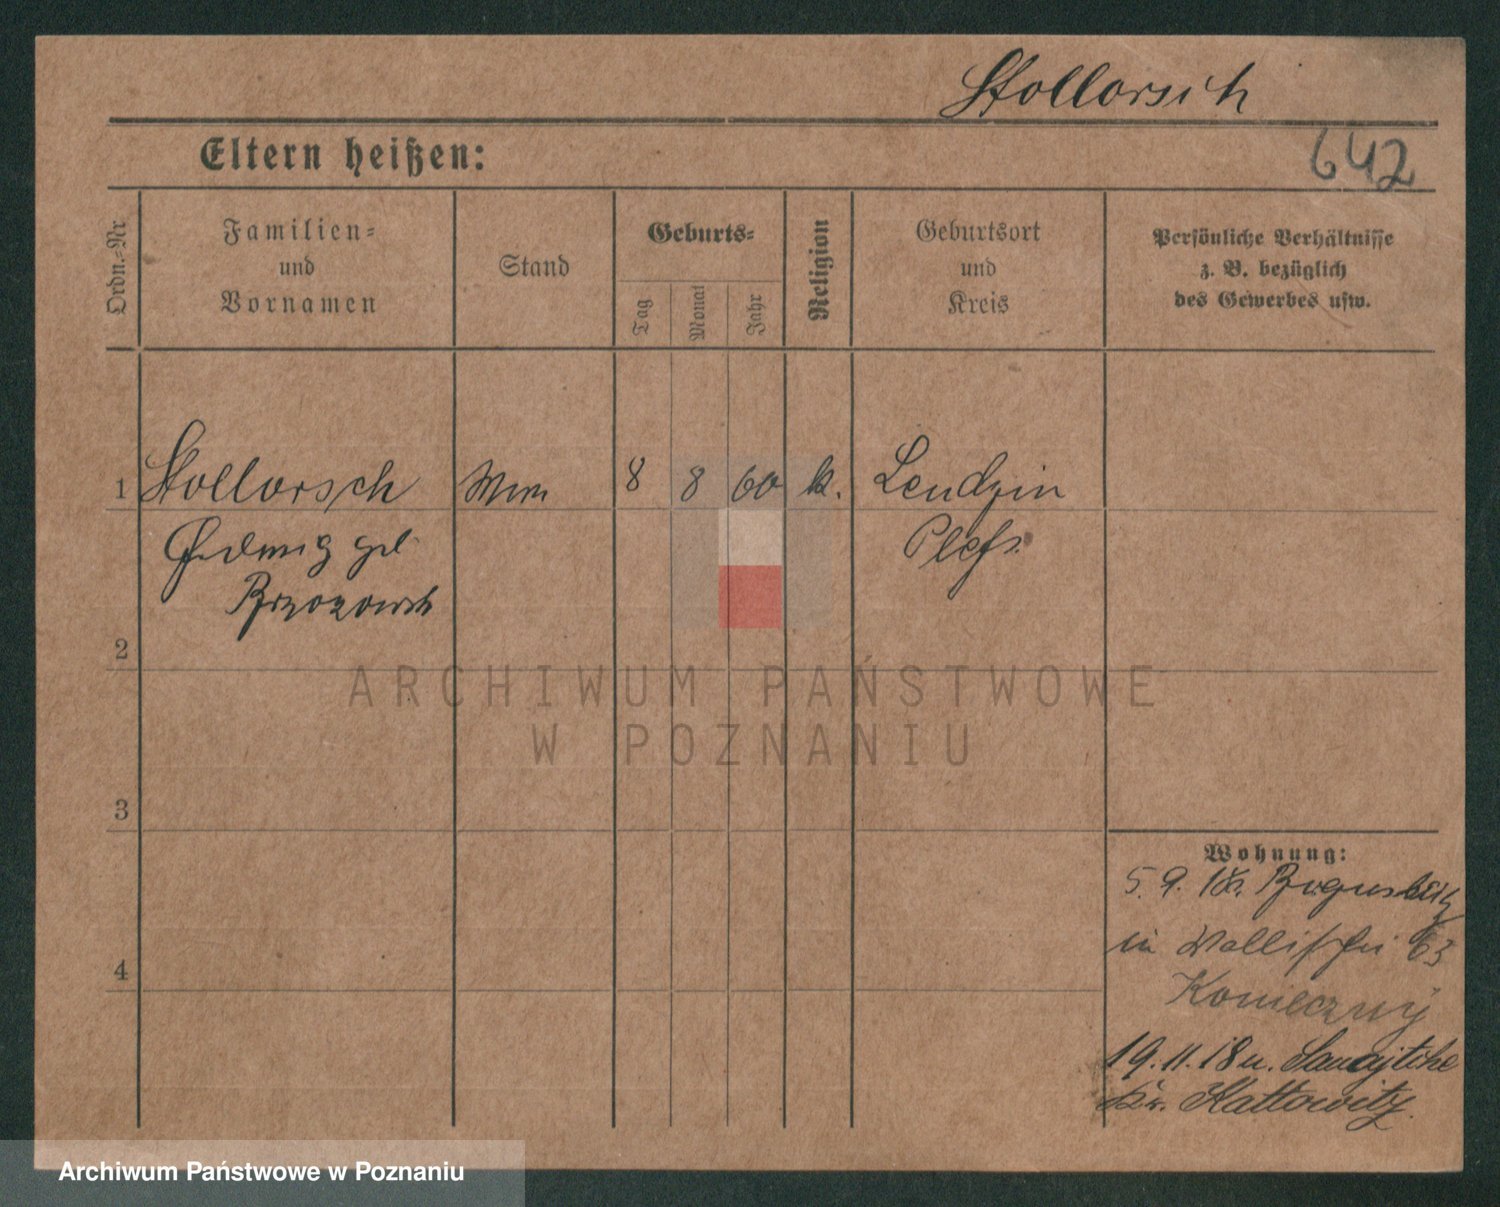 Stollorsch
642
Eltern heißen:
Ordn.-Nr
Familien-
und
Vornamen
Stand
Geburts-
Tag
Monat
Jahr
Religion
Geburtsort
und
Kreis
Persönliche Verhältnisse
z. B. bezüglich
des Gewerbes usw.
1 Stollorsch 8 8 60 k. Lendzin
Hedwig geb. Pleß
2
3
4
Wohnung:
5. 9. 18.
in Wallischei 63
Konieczny
19. 11. 18 n.
Kr. Kattowitz
ARCHIWUM PAŃSTWOWE
W POZNANIU
Archiwum Państwowe w Poznaniu